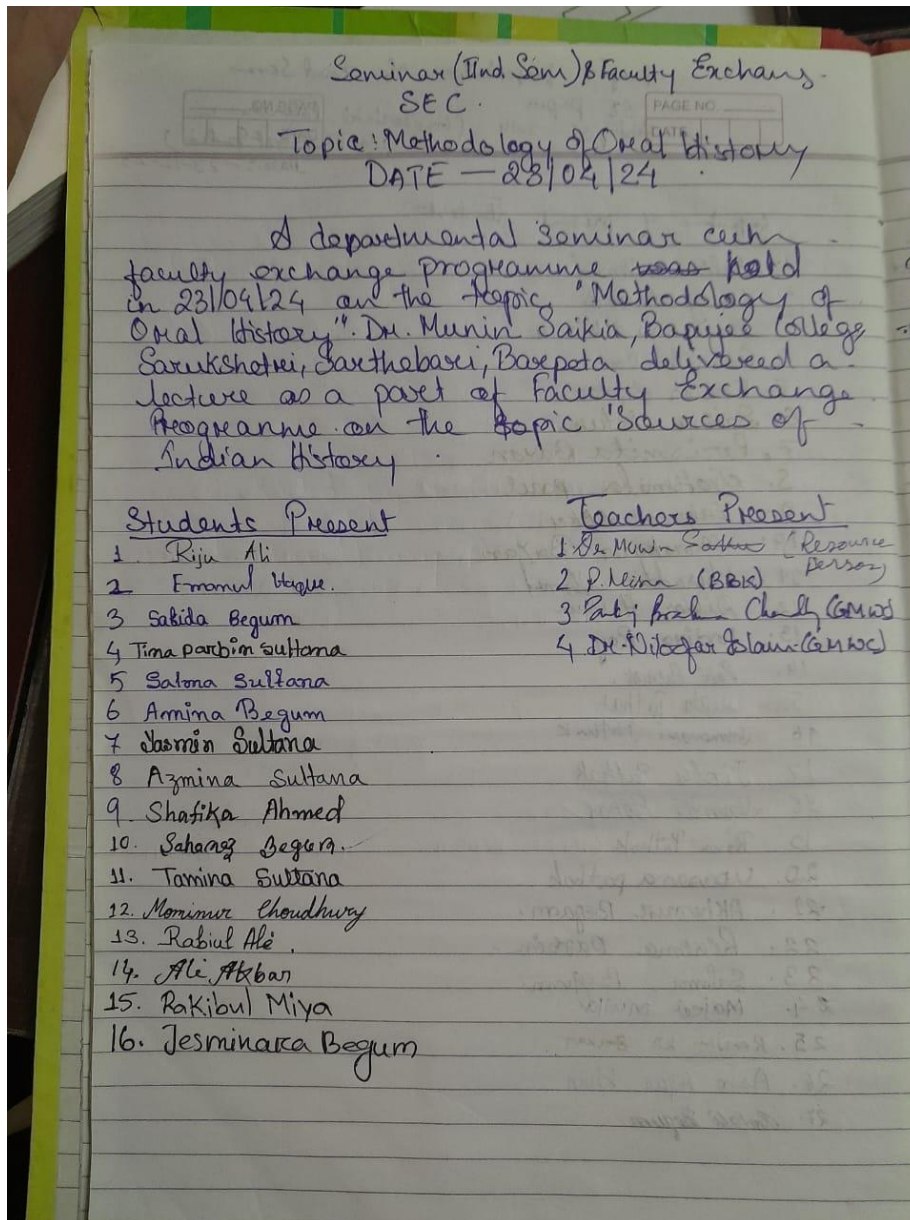 Seminar (IInd Sem) & Faculty Exchang.
SEC.
PAGE NO.
DATE
Topic: Methodology of Oral History
DATE — 23/04/24
A departmental seminar cum
faculty exchange programme was held
in 23/04/24 on the topic "Methodology of
Oral History". Dr. Munin Saikia, Bapujee College
Sarukshetri, Sarthebari, Barpeta delivered a
lecture as a part of Faculty Exchange
Programme on the topic 'Sources of
Indian History
Students Present
1 Riju Ali
2 Emamul Haque.
3 Sakida Begum
4 Tima parbin sultana
5 Salona Sultana
6 Amina Begum
7 Jasmin Sultana
8 Azmina Sultana
9. Shafika Ahmed
10. Sahanaz Begum.
11. Tamina Sultana
12. Mominur Choudhury
13. Rabiul Ali.
14. Ali Akbar
15. Rakibul Miya
16. Jesminara Begum
Teachers Present
1 Dr Munin (Resource
person)
2 P. (BBK)
3 (GMWC)
4 Dr. Nilofar Islam (GMWC)